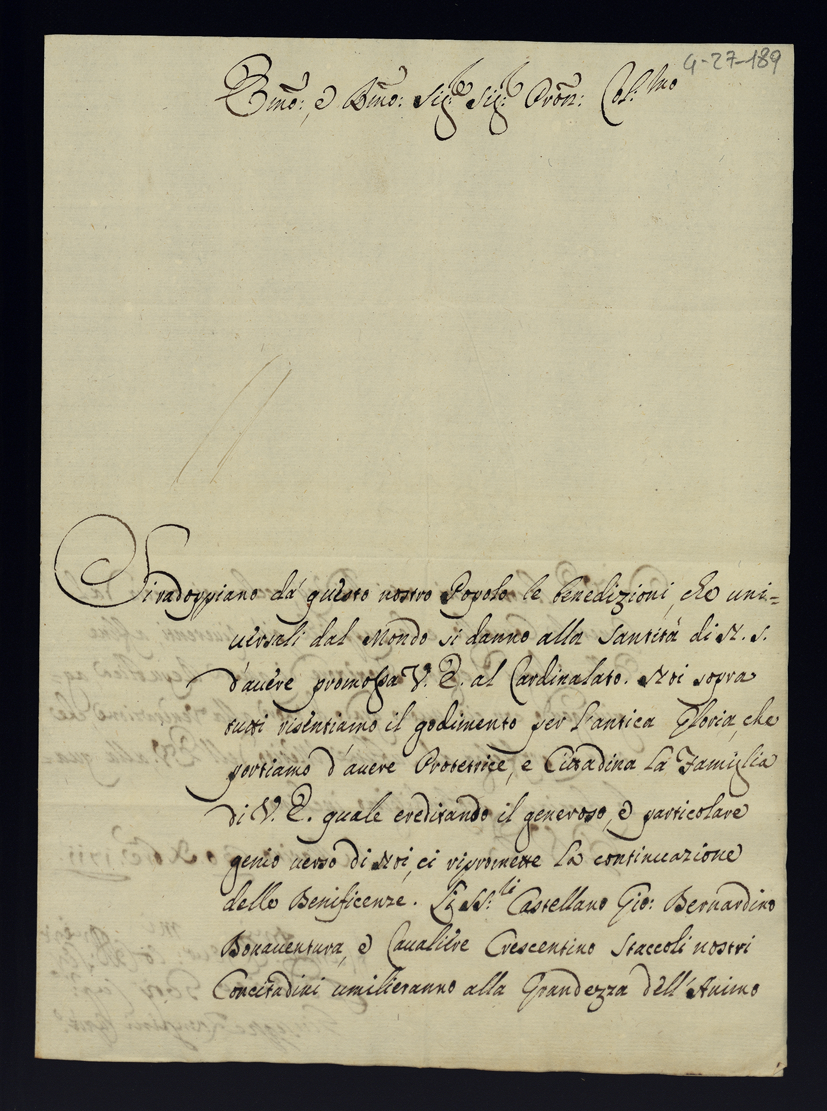 4-27-189
Emo:, e Rmo: Sig.re Sig.re Pron: Col:mo
Si radoppiano dà questo nostro Popolo le benedizioni, che uni=
uersali dal Mondo si danno alla Santità di N. S.
d'auere promossa V. E. al Cardinalato. Noi sopra
tutti risentiamo il godimento per l'antica Gloria, che
portiamo d'auere Protetrice, e Cittadina la Famiglia
di V. E. quale ereditando il generoso, e particolare
genio uerso di Noi, ci ripromette la continuazione
delle Benificenze. Li SS.ri Castellano Gio: Bernardino
Bonauentura, e Caualiere Crescentino Staccoli nostri
Concitadini umilieranno alla Grandezza dell'Animo